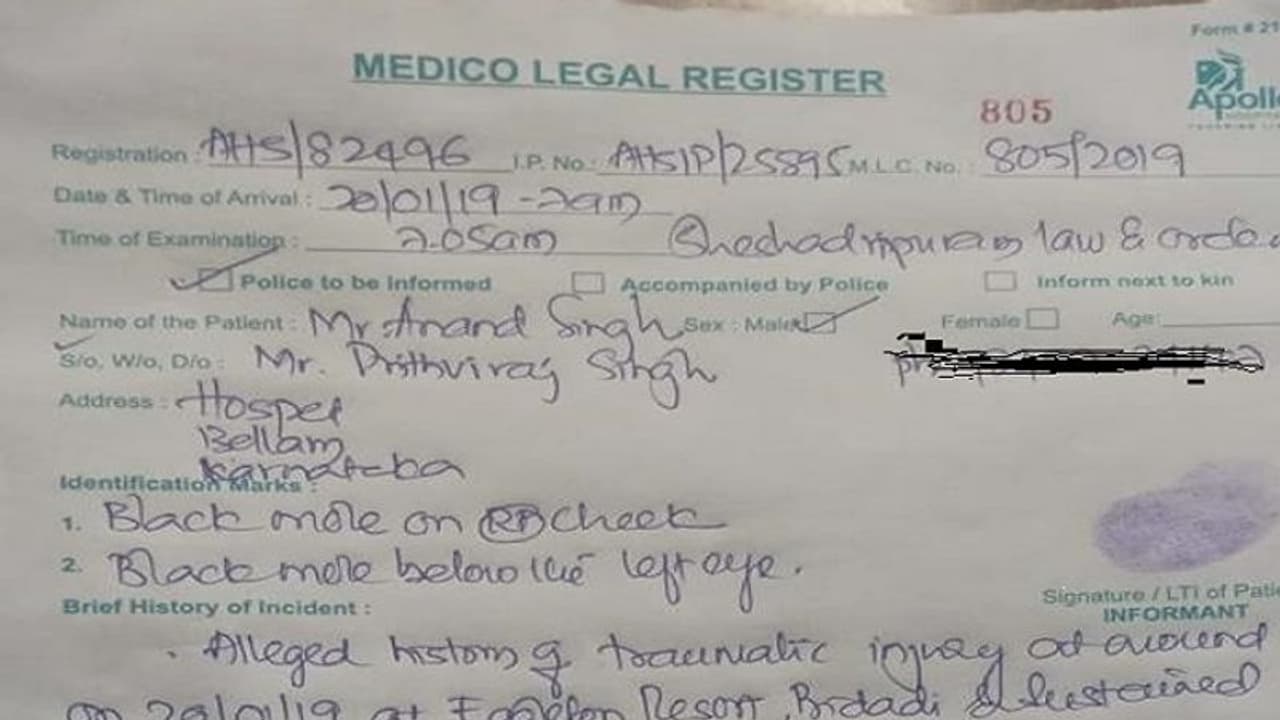 Form # 21
MEDICO LEGAL REGISTER
Apollo
805
Registration : AHS/82496 I.P. No : AHSIP/25895 M.L.C. No. : 805/2019
Date & Time of Arrival : 20/01/19 - 2am
Time of Examination : 2.05am Shechadripuram law & order
Police to be Informed Accompanied by Police Inform next to kin
Name of the Patient : Mr. Anand Singh Sex : Male Female Age:
S/o, W/o, D/o : Mr. Prithviraj Singh
Address : Hospet
Bellam
Karnataka
Identification Marks :
1. Black mole on (R) cheek
2. Black mole below the left eye.
Signature / LTI of Patie
Brief History of Incident :
INFORMANT
. Alleged history of traumatic injury at around
on 20/01/19 at Eagleton Resort, Bidadi & sustained